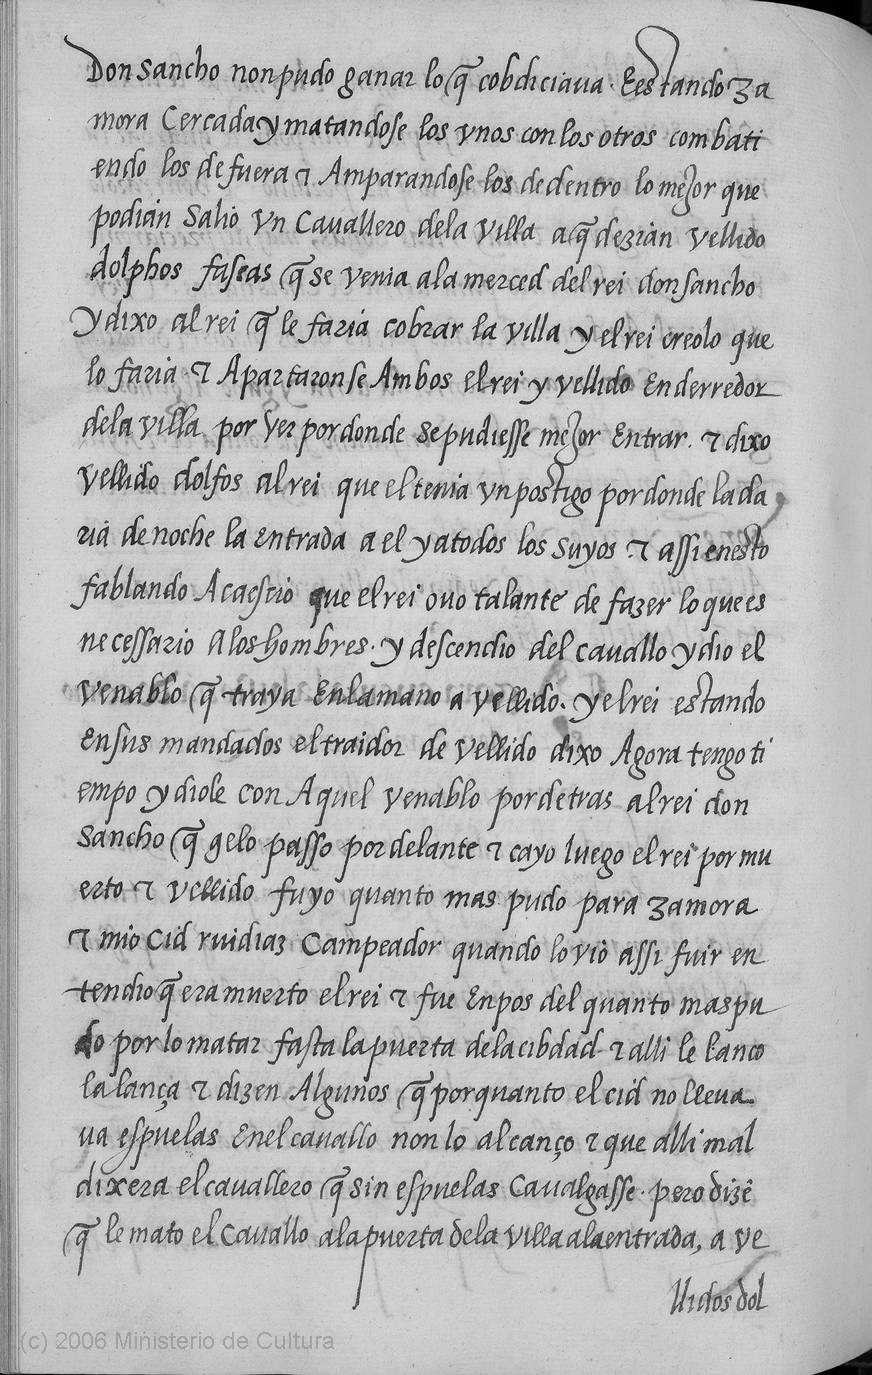 Don Sancho non pudo ganar lo q̃ cobdiciaua · E estando Za
mora Cercada y matandose los vnos con los otros combati
endo los de fuera ⁊ Amparandose los de dentro lo mejor que
podian Salio Vn Cauallero de la villa a q̃ dezian vellido
dolphos faseas q̃ se venia a la merced del rei don sancho
Y dixo al rei q̃ le faria cobrar la villa y el rei creolo que
lo faria · ⁊ Apartaronse Ambos el rei y vellido En derredor
de la villa por Ver por donde se pudiesse mejor Entrar. ⁊ dixo
Vellido dolfos al rei que el tenia vn postigo por donde la da
ria de noche la Entrada a el y a todos los suyos ⁊ assi en esto
fablando Acaescio que el rei ouo talante de fazer lo que es
necessario A los hombres · y descendio del cauallo y dio el
Venablo q̃ traya En la mano a vellido. y el rei estando
En sus mandados el traidor de vellido dixo Agora tengo ti
empo y diole con Aquel venablo por detras al rei don
Sancho q̃ gelo passo por delante ⁊ cayo luego el rei por mu
erto ⁊ Vellido fuyo quanto mas pudo para zamora
⁊ mio Cid ruidiaz Campeador quando lo vio assi fuir en
tendio q̃ era muerto el rei ⁊ fue Enpos del quanto mas pu
do por lo matar fasta la puerta de la cibdad ⁊ alli le lanco
la lança ⁊ dizen Algunos q̃ por quanto el cid no lleua
ua espuelas En el cauallo non lo alcanço ⁊ que alli mal
dixera el cauallero q̃ sin espuelas Caualgasse · pero dizē
q̃ le mato el Cauallo a la puerta de la villa a la entrada, a ve
llidos dol
(c) 2006 Ministerio de Cultura